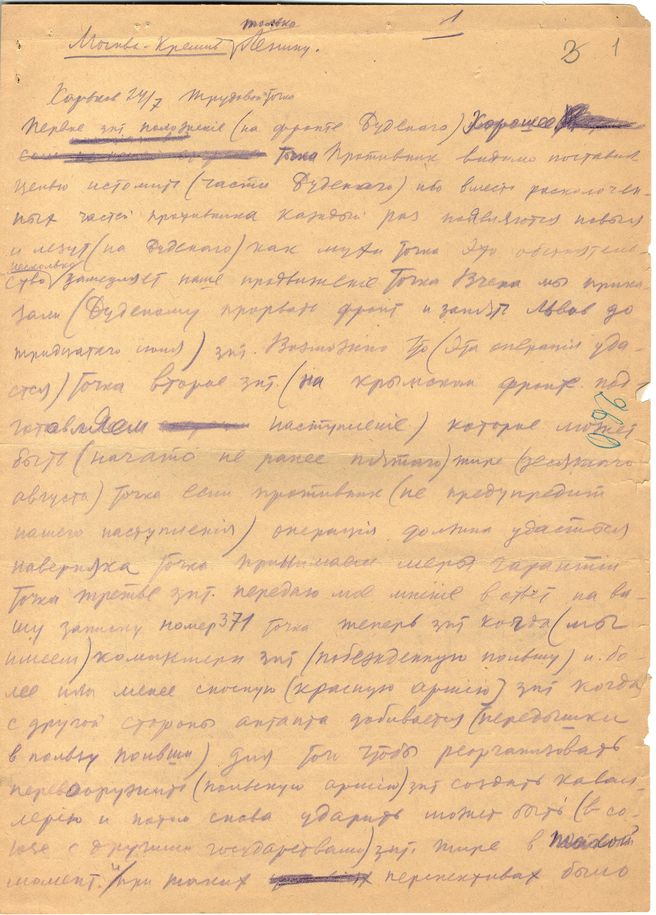 только
1
Москва-Кремль Ленину.
3 1
Харьков 24/7 Трудовой точка
Первое зпт положение (на фронте Буденого) хорошее
точка Противник видимо поставил
целью истомить (части Буденого) ибо вместо расколочен-
ных частей противника каждый раз появляются новыя
и лезут (на Буденого) как мухи точка Это обстоятель-
несколько
ство замедляет наше продвижение точка Вчера мы прика-
зали (Буденому прорвать фронт и занять Львов до
тридцатого июля) зпт. Возможно что (эта операция уда-
стся) точка второе зпт. (на крымском фронте под-
готовляем наступление) которое может
960
быть (начато не ранее пятого) тире (десятого
августа) точка если противник (не предупредит
нашего наступления) операция должна удасться
наверняка точка принимаем меры гарантии
точка третье зпт. передаю мое мнение в ответ на ва-
шу записку номер 371 точка теперь зпт когда (мы
имеем) коминтерн зпт (побежденную польшу) и бо-
лее или менее сносную (красную армию) зпт когда
с другой стороны антанта добивается (передышки
в пользу польши) для того чтобы реорганизовать
перевооружить (польскую армию) зпт создать кавал-
лерию и потом снова ударить может быть (в со-
юзе с другими государствами) зпт тире в такой
момент и при таких перспективах было